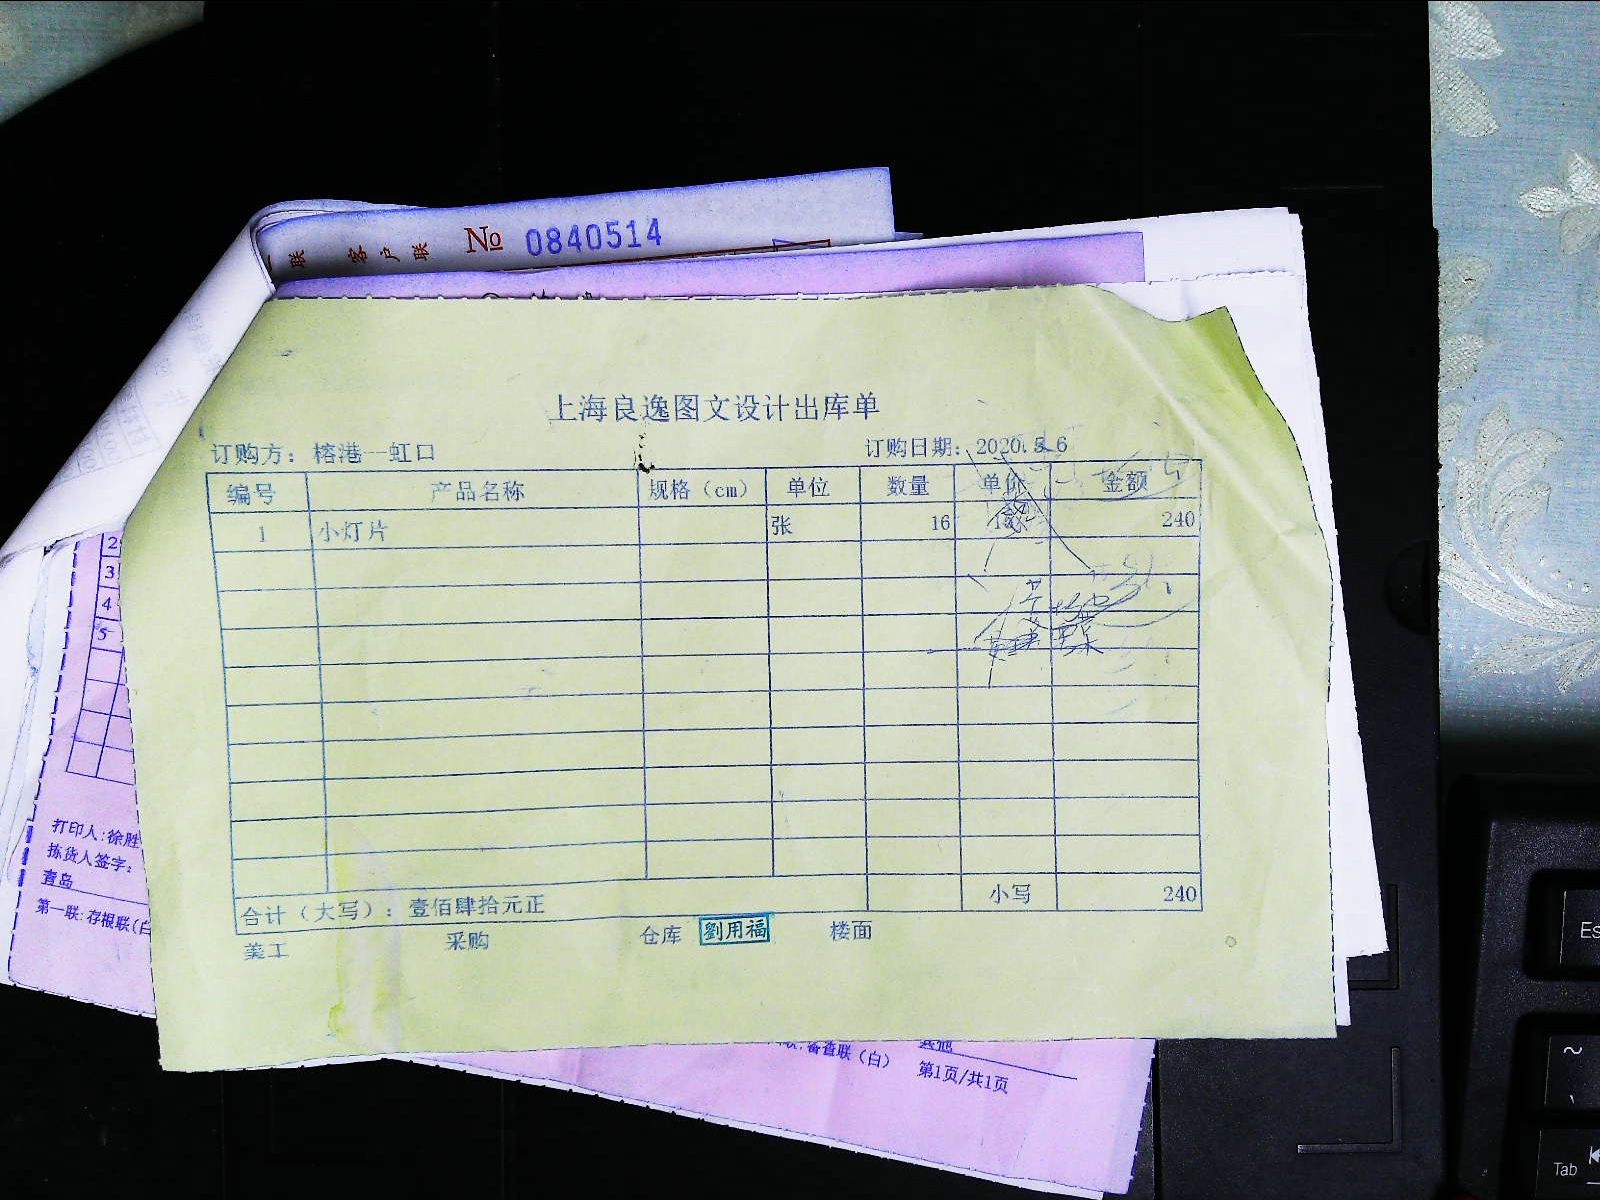 联 客户联 № 0840514
上海良逸图文设计出库单
订购方：榕港一虹口 订购日期：2020.5.6
编号 产品名称 规格（cm） 单位 数量 单价 金额
1 小灯片 张 16 240
合计（大写）：壹佰肆拾元正 小写 240
美工 采购 仓库 劉用福 楼面
2
3
4
5
打印人：徐胜
拣货人签字：
青岛
第一联：存根联（白
审查联（白） 其他
第1页/共1页
Es
~
Tab